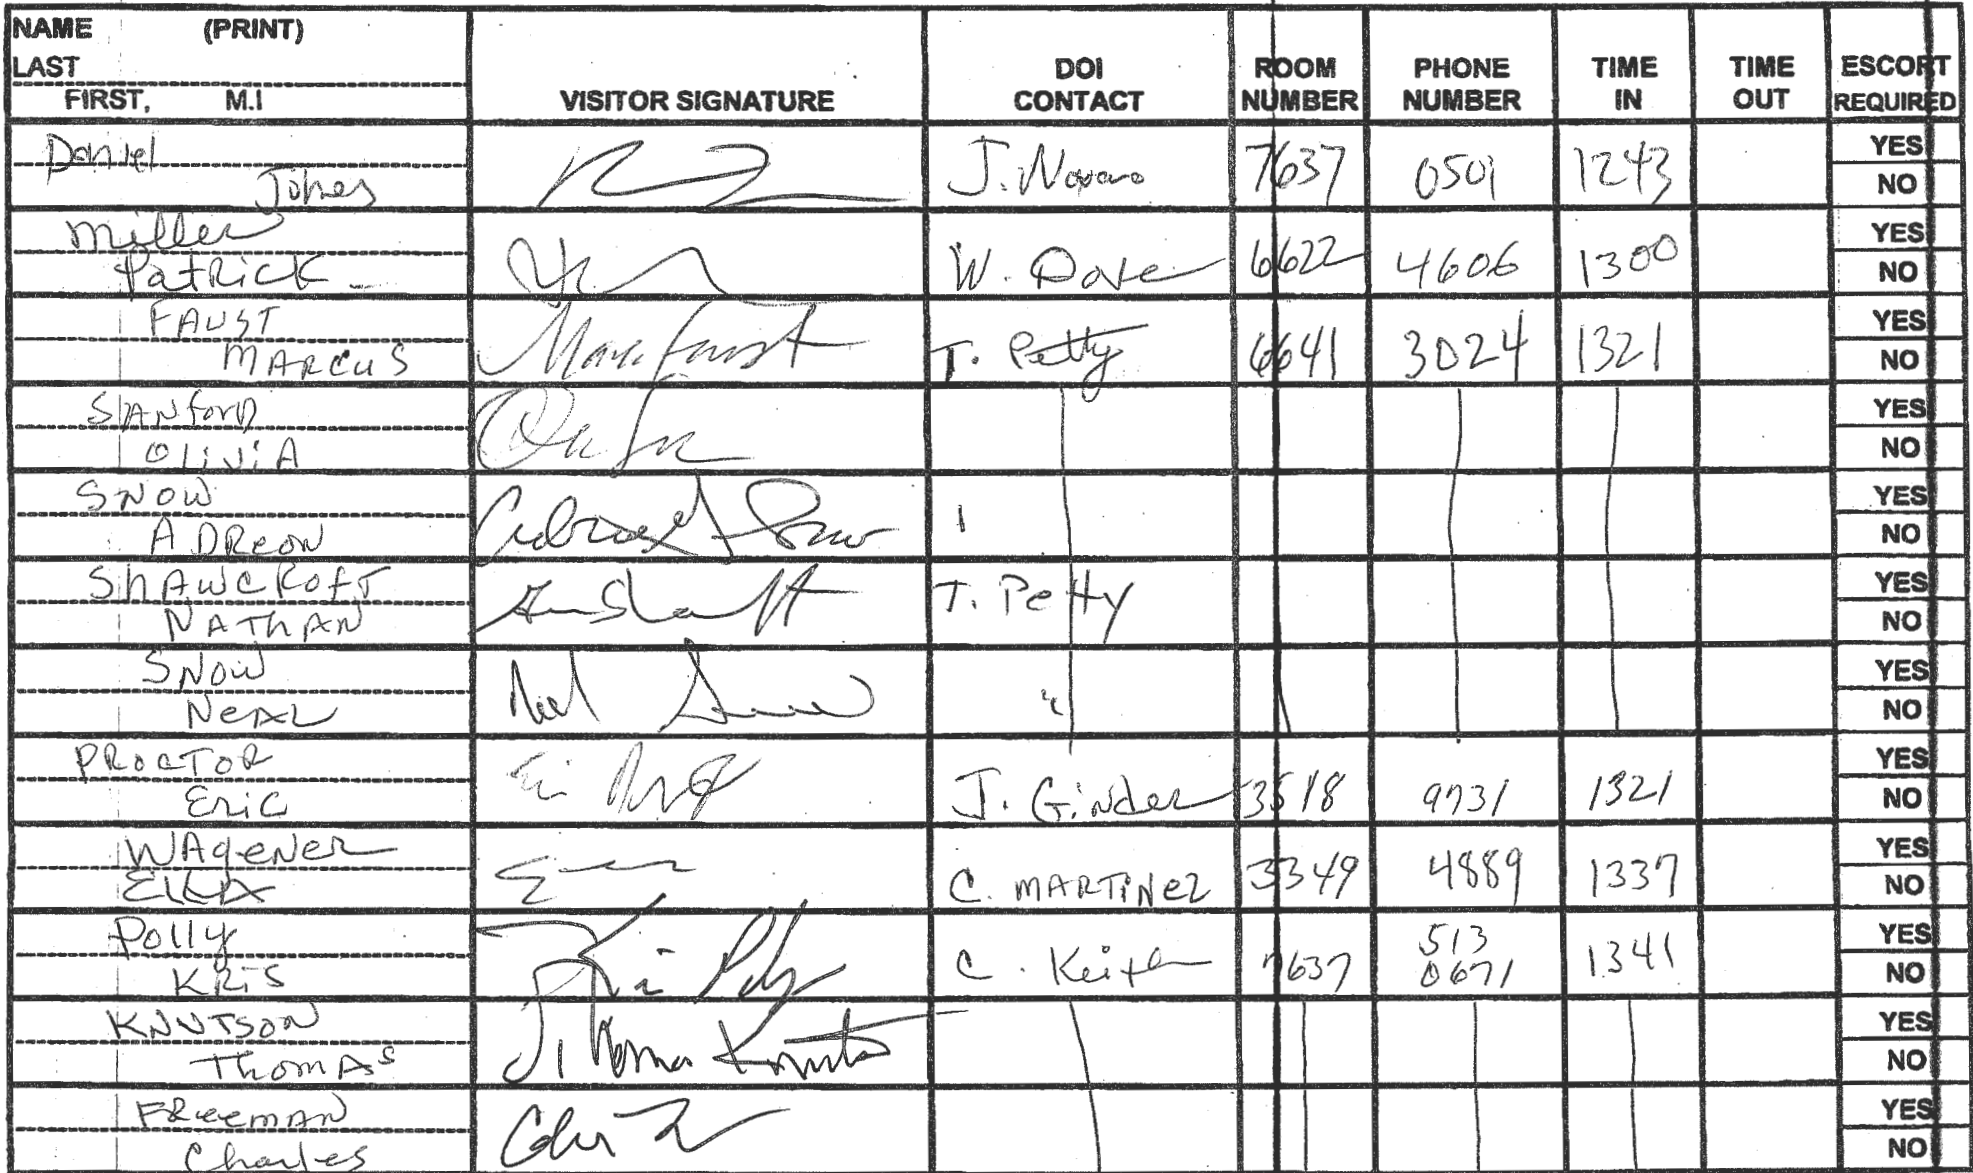 NAME (PRINT)
LAST
FIRST, M.I
VISITOR SIGNATURE
DOI CONTACT
ROOM NUMBER
PHONE NUMBER
TIME IN
TIME OUT
ESCORT REQUIRED
Daniel
Jones
J. 7637 0501 1243
YES
NO
Miller
Patrick
W. 6622 4606 1300
YES
NO
FAUST
MARCUS
Marc Faust T. Petty 6641 3024 1321
YES
NO
SANford
OliviA
YES
NO
SNOW
ADReon
Snow
YES
NO
ShAWCRoft
NATHAN
T. Petty
YES
NO
SNOW
NeAL
Neal Snow "
YES
NO
PROCTOR
Eric
J. Ginder 3518 9731 1321
YES
NO
WAgeNer
C. MARTiNez 3349 4889 1337
YES
NO
Polly
KRis
Kris Polly C. Keith 7637 513 0671 1341
YES
NO
KNUTSON
ThomAs
Thomas Knutson
YES
NO
FReemAN
Charles
YES
NO